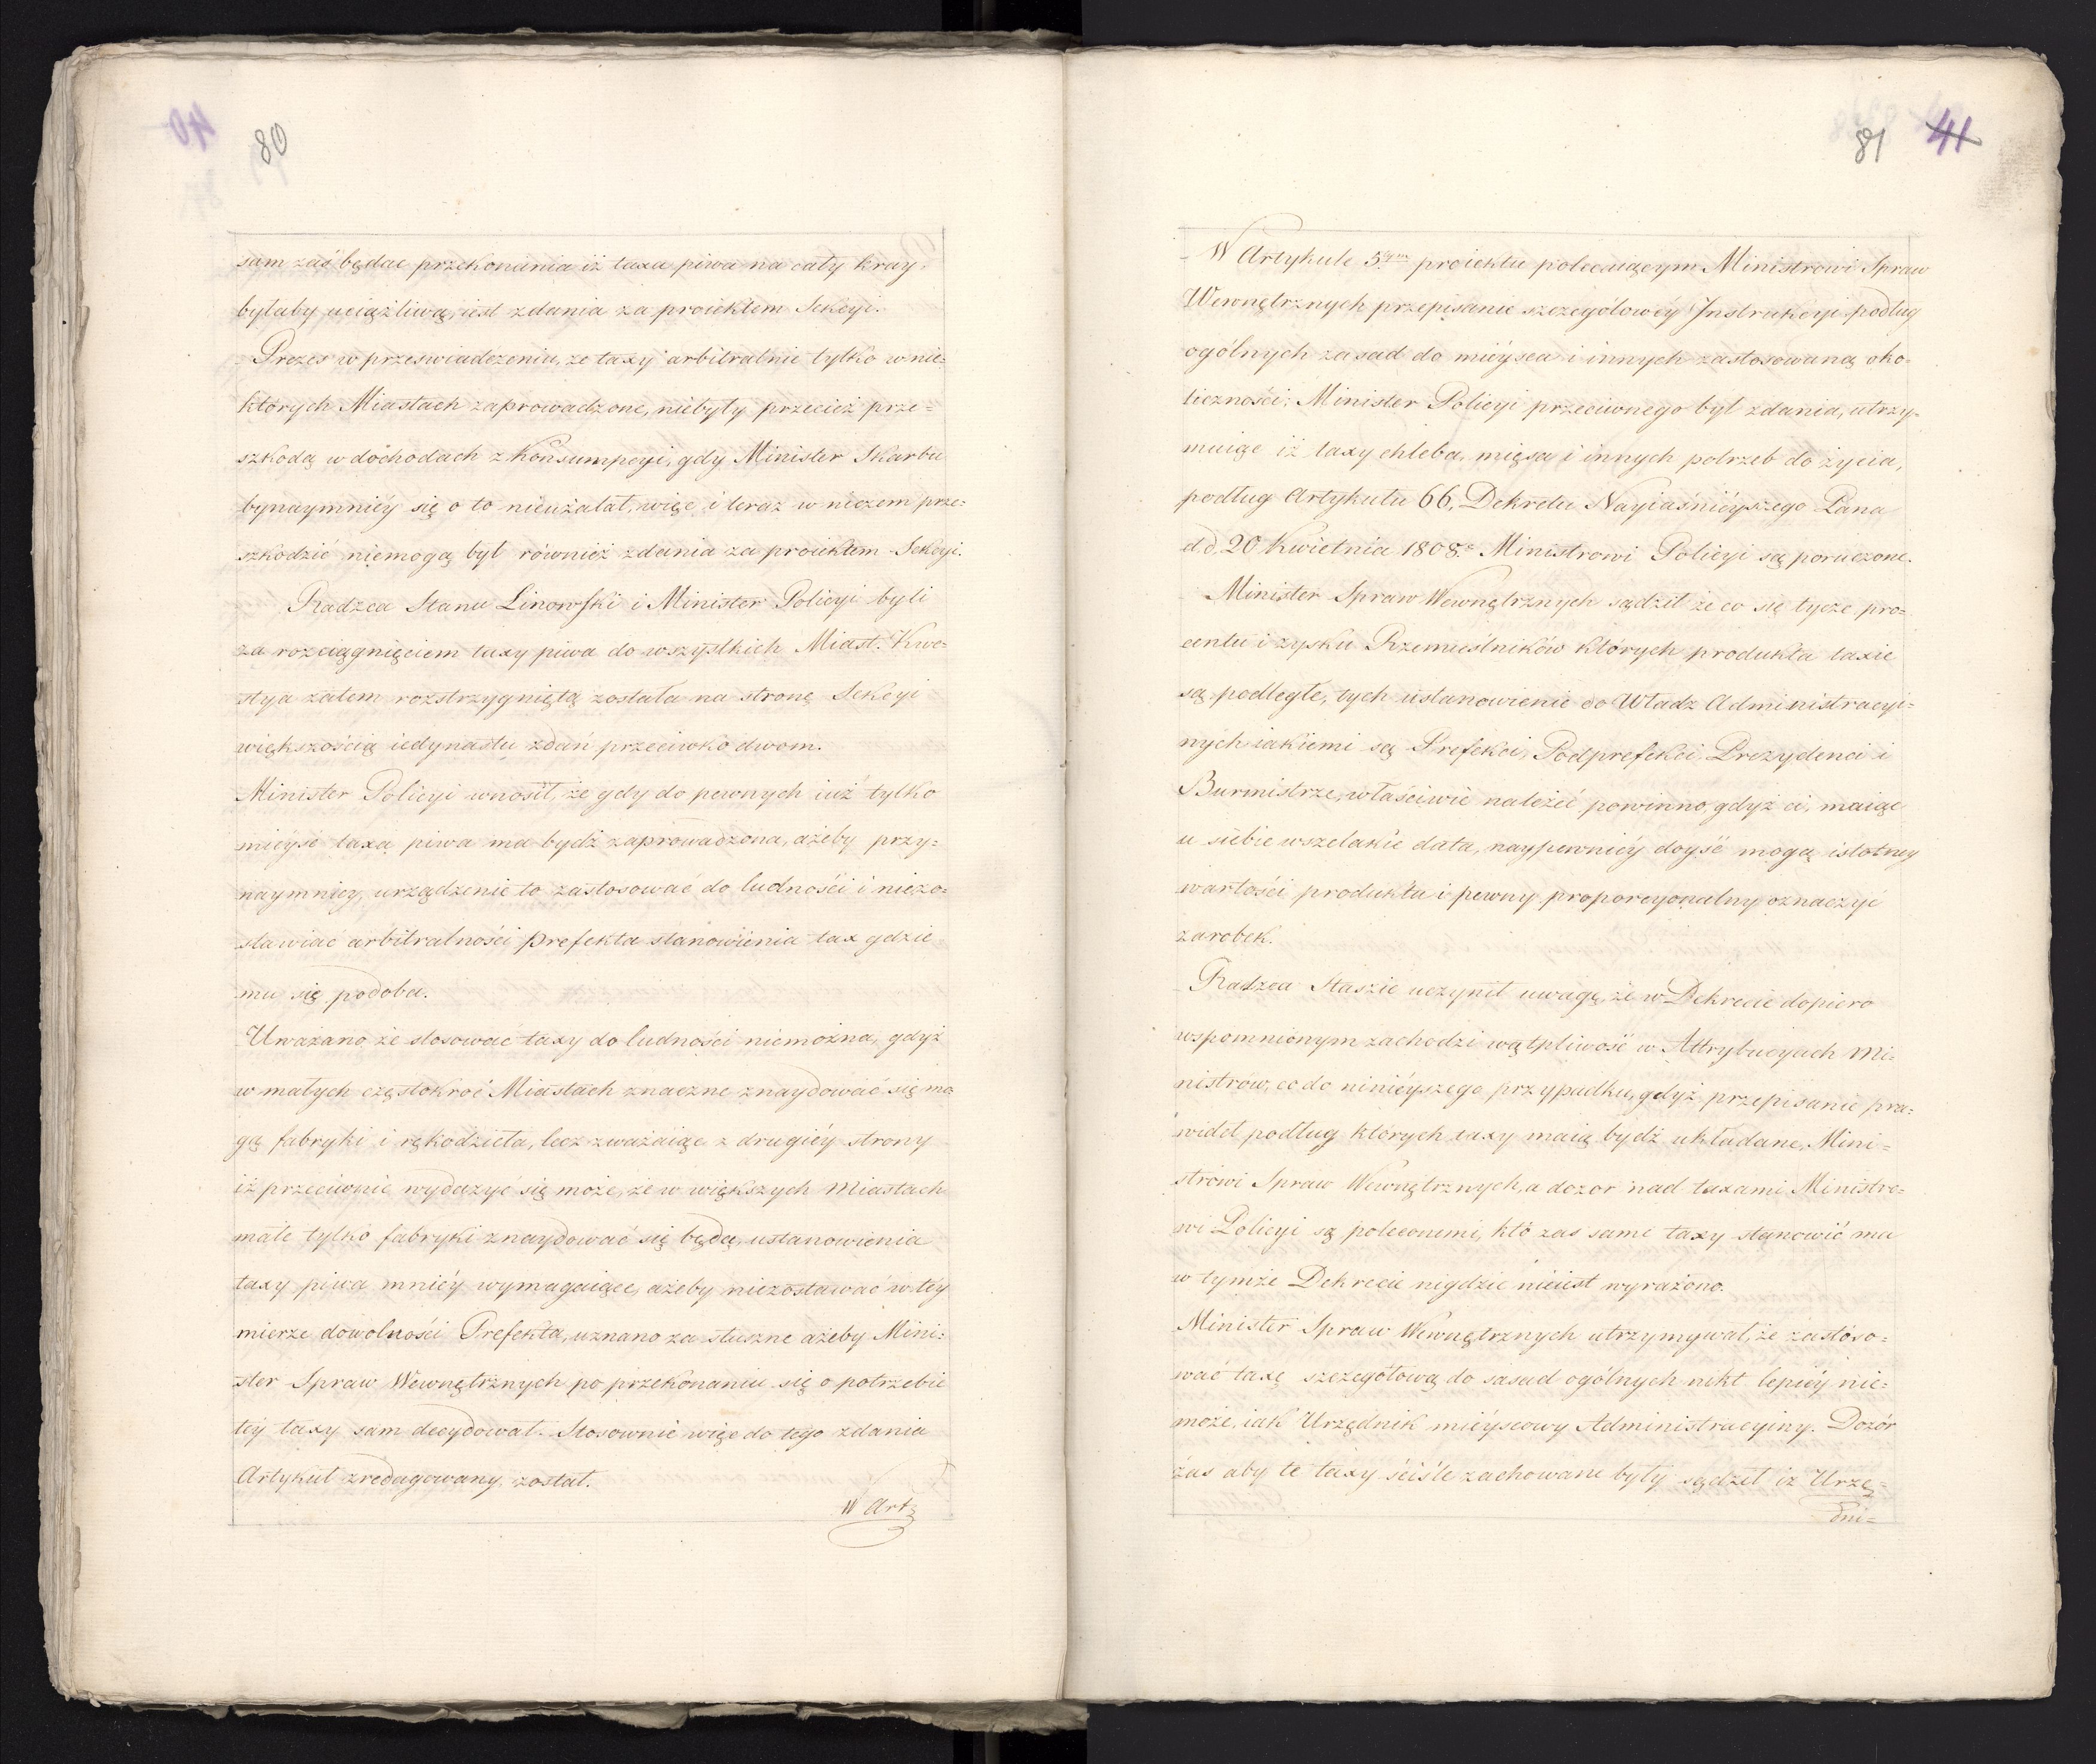 80
sam zaś będąc przekonania iż taxa piwa na cały kray,
byłaby uciążliwą, iest zdania za proiektem Sekcyi.
Prezes w przeswiadczeniu, ze taxy arbitralnie tylko w nie=
których Miastach zaprowadzone, niebyły przecież prze=
szkodą w dochodach z Konsumpcyi, gdy Minister Skarbu
bynaymniéy się o to nieużalał, więc i teraz w niczem prze=
szkodzić niemogą był również zdania za proiektem Sekcyi.
Radzca Stanu Linowski i Minister Policyi byli
za rozciągnięciem taxy piwa do wszystkich Miast. Kwe=
stya zatem rozstrzygniętą została na stronę Sekcyi
większością iedynastu zdań przeciwko dwom.
Minister Policyi wnosił, że gdy do pewnych iuż tylko
mieysc taxa piwa ma bydź zaprowadzona, ażeby przy=
naymniey urządzenie to zastosować do ludności i niezo=
stawiać arbitralności Prefekta stanowienia tax gdzie
mu się podoba.
Uważano że stosować taxy do ludności niemożna, gdyż
w małych częstokroć Miastach znaczne znaydować się mo
gą fabryki i rękodzieła, lecz zważaiąc z drugiéy strony
iż przeciwnie wydażyć się może, że w większych Miastach
małe tylko fabryki znaydować się będą, ustanowienia
taxy piwa mniéy wymagaiące, ażeby niezostawać w téy
mierze dowolności Prefekta, uznano za słuszne ażeby Mini=
ster Spraw Wewnętrznych po przekonaniu się o potrzebie
téy taxy sam decydował. Stosownie więc do tego zdania
Artykuł zredagowany został.
W Art
81 41
W Artykule 5.tym proiektu polecaiącym Ministrowi Spraw
Wewnętrznych przepisanie szczegółowéy Instrukcyi podług
ogólnych zasad do mieysca i innych zastosowaną oko=
liczności; Minister Policyi przeciwnego był zdania, utrzy=
muiąc iż taxy chleba, mięsa i innych potrzeb do życia,
podług Artykułu 66, Dekretu Nayiaśnieyszego Pana
d.d. 20 Kwietnia 1808. Ministrowi Policyi są poruczone.
Minister Spraw Wewnętrznych sądził że co się tycze pro=
centu i zysku Rzemieślników których produkta taxie
są podległe, tych ustanowienie do Władz Administracyi=
nych iakiemi są Prefekci, Podprefekci, Prezydenci i
Burmistrze, właściwie należeć powinno, gdyż ci, maiąc
u siebie wszelakie data, naypewniéy doyść mogą istotney
wartości produktu i pewny proporcyonalny oznaczyć
zarobek.
Radzca Staszic uczynił uwagę, że w Dekrecie dopiero
wspomnionym zachodzi wątpliwość w Attrybucyach Mi=
nistrów, co do ninieyszego przypadku, gdyż przepisanie pra=
wideł podług których taxy maią bydź układane, Mini=
strowi Spraw Wewnętrznych, a dozor nad taxami Ministro=
wi Policyi są poleconemi, kto zas same taxy stanowić ma
w tymże Dekrecie nigdzie nieiest wyrażono.
Minister Spraw Wewnętrznych utrzymywał, że zastoso=
wać taxę szczegółową do zasad ogólnych nikt lepiéy nie=
może, iak Urzędnik mieyscowy Administracyiny. Dozór
zas aby te taxy ściśle zachowane były sądził iż Urzę=
dni=